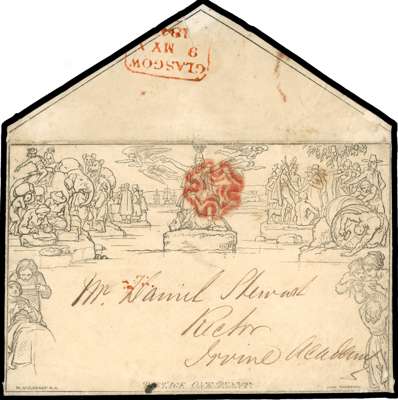 GLASGOW
9 MY
184
Mr. Daniel Stewart
Rector
Irvine Academy
POSTAGE ONE PENNY.
W. MULREADY R.A.
JOHN THOMPSON